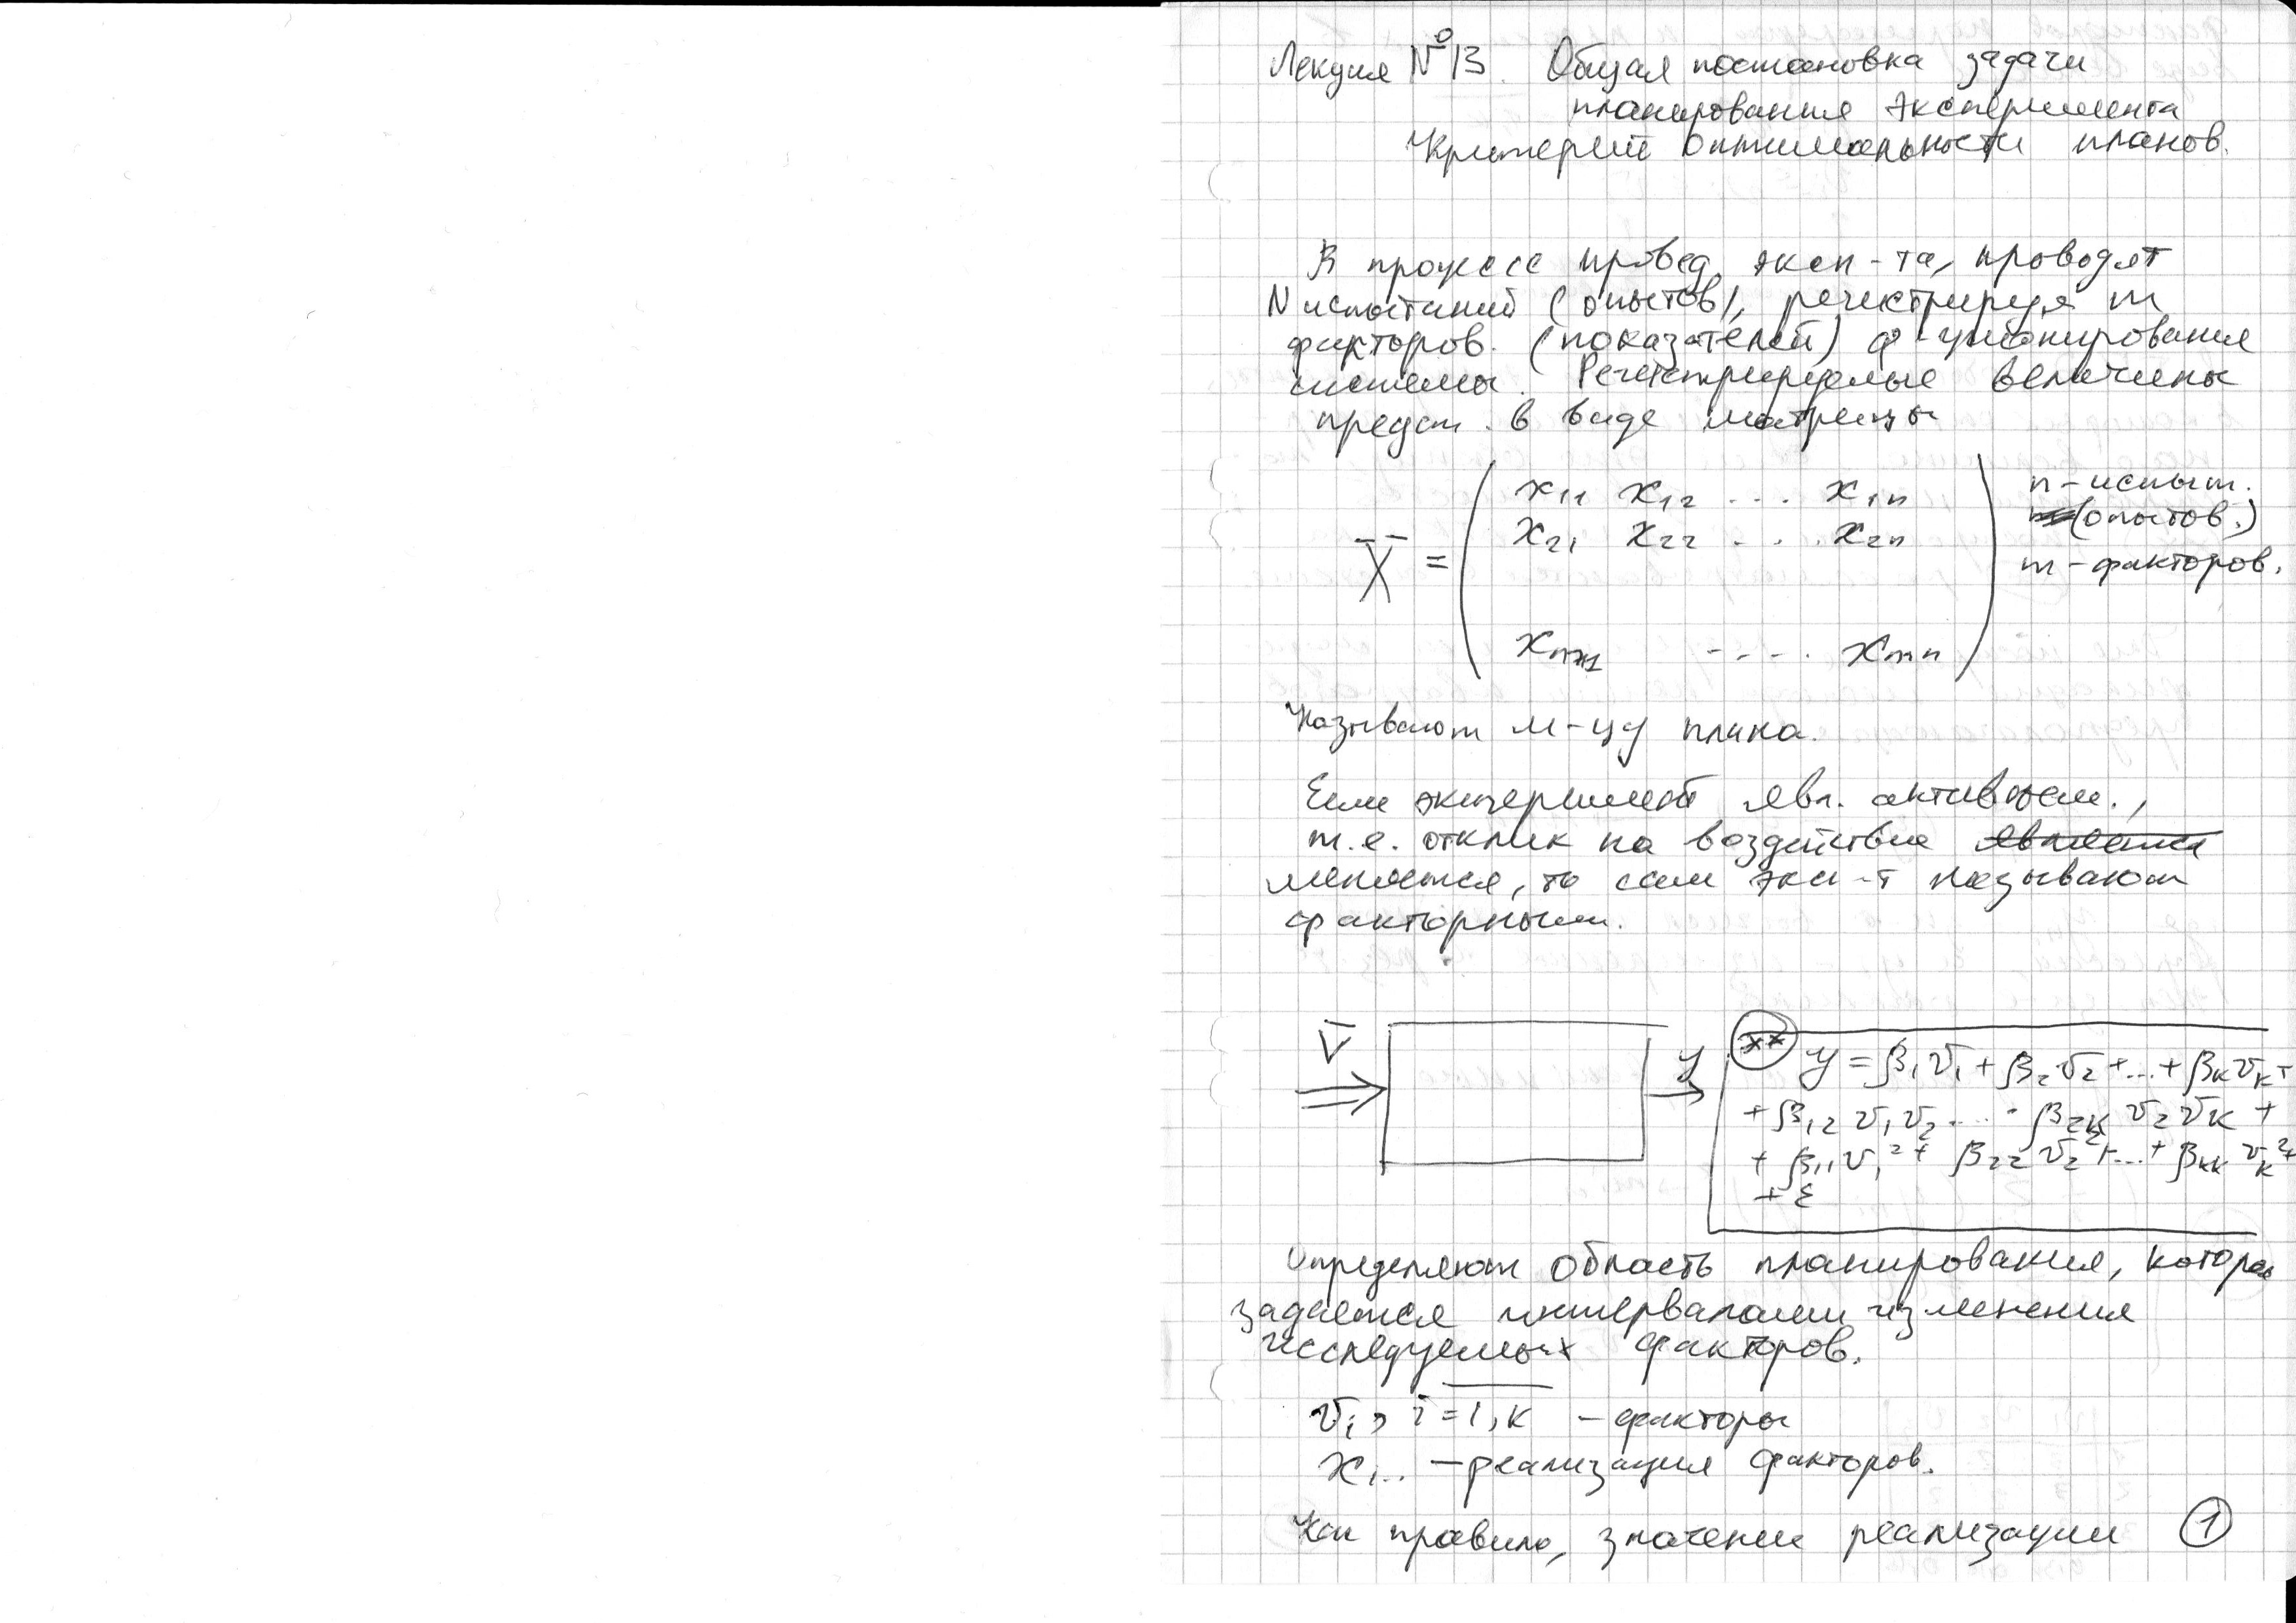 Лекция №13. Общая постановка задачи
планирования эксперимента
Критерии оптимальности планов.
В процессе провед. эксп-та, проводят
N испытаний (опытов), регистрируя m
факторов. (показателей) ф-ционирования
системы. Регистрируемые величины
предст. в виде матрицы
X = ( x11 x12 ... x1n
x21 x22 ... x2n
xm1 .... xmn )
n - испыт.
(опытов.)
m - факторов.
Называют м-цу плана.
Если эксперимент явл. активным.,
т.е. отклик на воздействие является
меняется, то сам экс-т называют
факторным.
V̄
y
** y = β1v1 + β2v2 + ... + βkvk +
+ β12 v1v2 .... β2k v2 vk +
+ β11v1² + β22 v2² + ... + βkk vk² +
+ ε
Определяют область планирования, которая
задается интервалами изменения
исследуемых факторов.
vi, i = 1, k - факторы
x1.. - реализация факторов.
Как правило, значение реализации 1